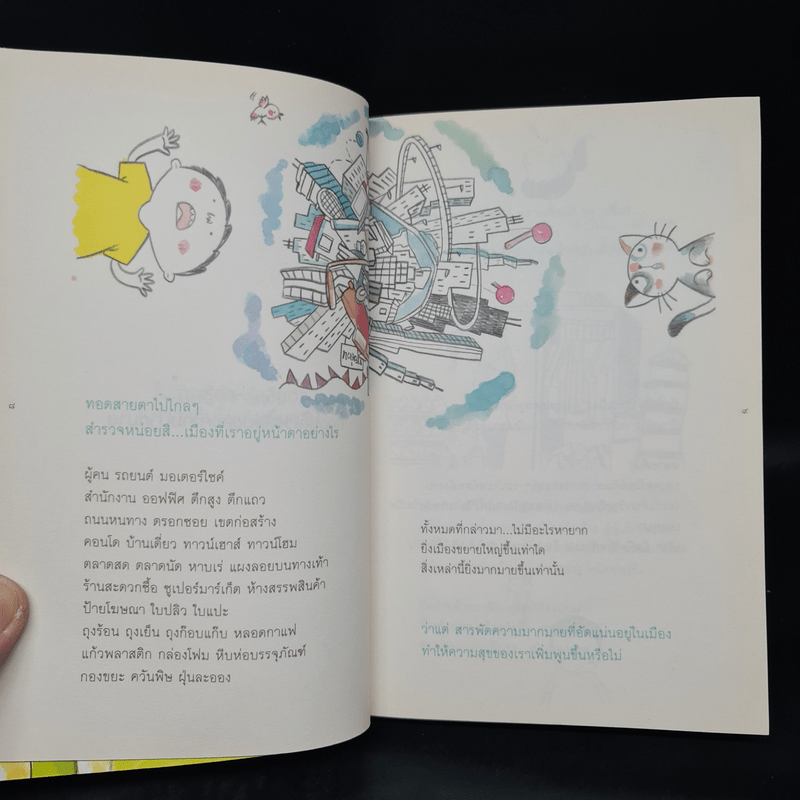 ๘
ทอดสายตาไปไกลๆ
สำรวจหน่อยสิ...เมืองที่เราอยู่หน้าตาอย่างไร
ผู้คน รถยนต์ มอเตอร์ไซค์
สำนักงาน ออฟฟิศ ตึกสูง ตึกแถว
ถนนหนทาง ตรอกซอย เขตก่อสร้าง
คอนโด บ้านเดี่ยว ทาวน์เฮาส์ ทาวน์โฮม
ตลาดสด ตลาดนัด หาบเร่ แผงลอยบนทางเท้า
ร้านสะดวกซื้อ ซูเปอร์มาร์เก็ต ห้างสรรพสินค้า
ป้ายโฆษณา ใบปลิว ใบแปะ
ถุงร้อน ถุงเย็น ถุงก๊อบแก๊บ หลอดกาแฟ
แก้วพลาสติก กล่องโฟม หีบห่อบรรจุภัณฑ์
กองขยะ ควันพิษ ฝุ่นละออง
๙
ทั้งหมดที่กล่าวมา...ไม่มีอะไรหายาก
ยิ่งเมืองขยายใหญ่ขึ้นเท่าใด
สิ่งเหล่านี้ยิ่งมากมายขึ้นเท่านั้น
ว่าแต่ สารพัดความมากมายที่อัดแน่นอยู่ในเมือง
ทำให้ความสุขของเราเพิ่มพูนขึ้นหรือไม่